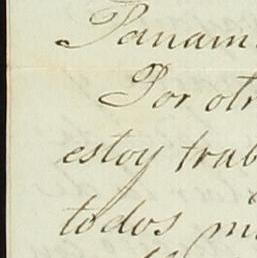 Panam
Por otr
estoy trab
todos mi